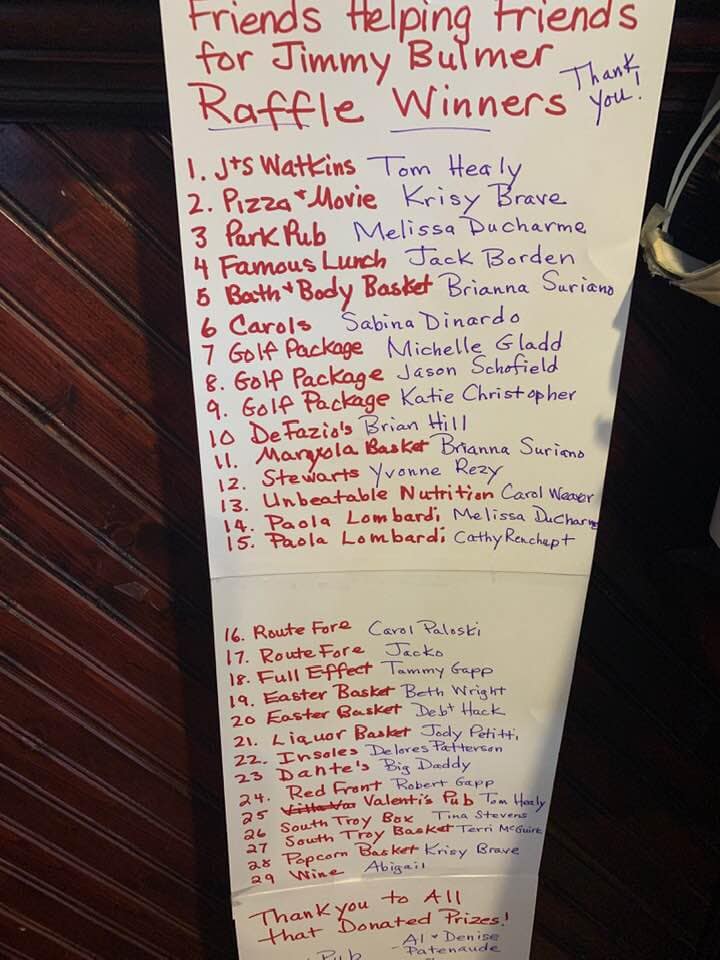 Friends Helping Friends
for Jimmy Bulmer
Raffle Winners Thank you!
1. J+S Watkins Tom Healy
2. Pizza + Movie Krisy Brave
3 Park Pub Melissa Ducharme
4 Famous Lunch Jack Borden
5 Bath + Body Basket Brianna Suriano
6 Carols Sabina Dinardo
7 Golf Package Michelle Gladd
8. Golf Package Jason Schofield
9. Golf Package Katie Christopher
10 DeFazio's Brian Hill
11. Basket Brianna Suriano
12. Stewarts Yvonne Rezy
13. Unbeatable Nutrition Carol Weaver
14. Paola Lombardi Melissa DuCharme
15. Paola Lombardi Cathy
16. Route Fore Carol Paloski
17. Route Fore Jacko
18. Full Effect Tammy Gapp
19. Easter Basket Beth Wright
20 Easter Basket Hack
21. Liquor Basket Jody Petitti
22. Insoles Delores Patterson
23 Dante's Big Daddy
24. Red Front Robert Gapp
25 Valenti's Pub Tom Healy
26 South Troy Box Tina Stevens
27 South Troy Basket Terri McGuire
28 Popcorn Basket Krisy Brave
29 Wine Abigail
Thank you to All
that Donated Prizes!
Al + Denise
Pub Patenaude